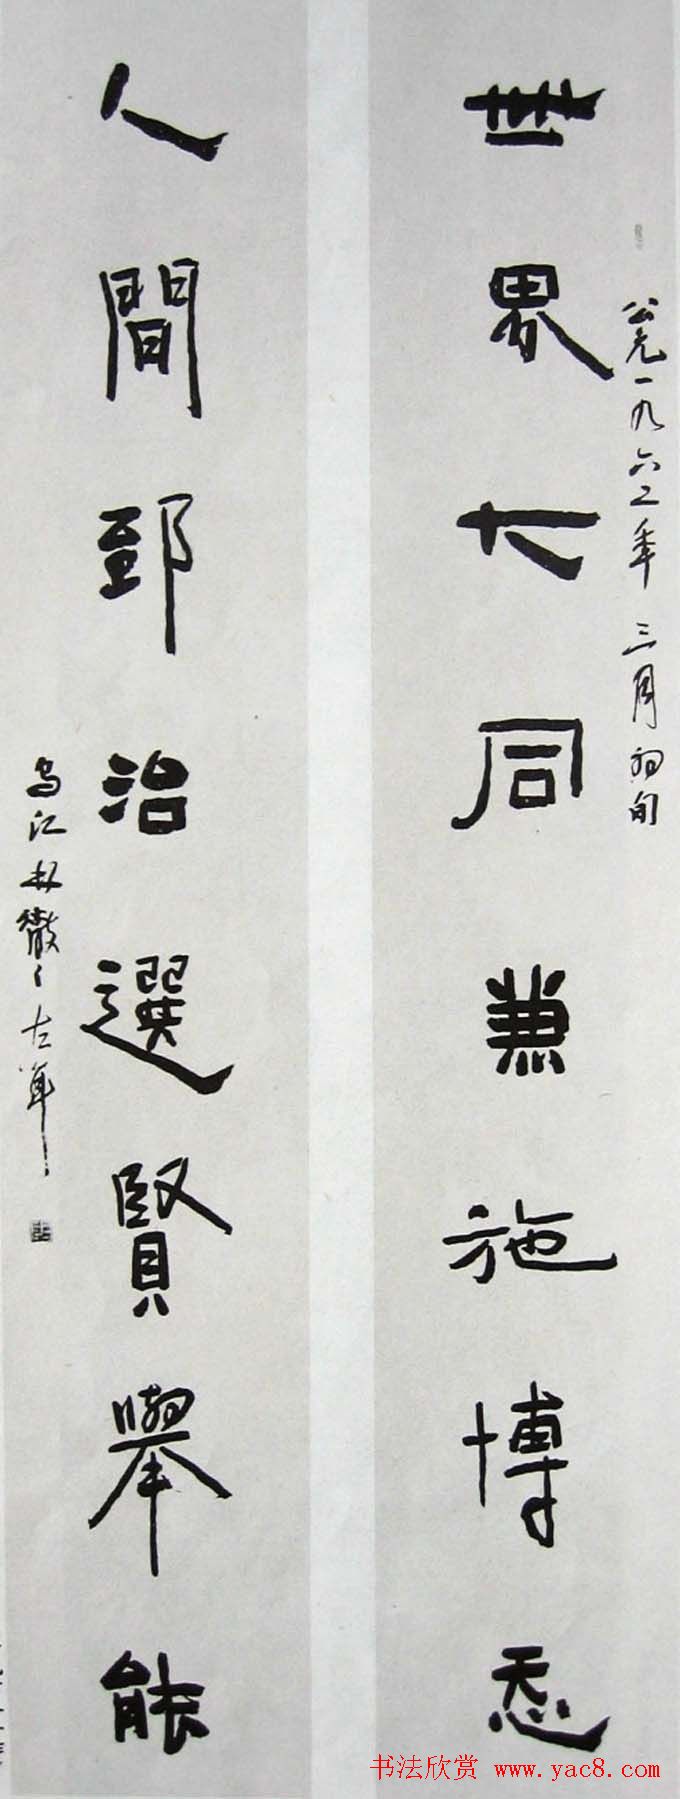 世界大同兼施博㤅
公元一九六二年三月初旬
人間郅治選賢舉能
烏江林散之左
书法欣赏 www.yac8.com